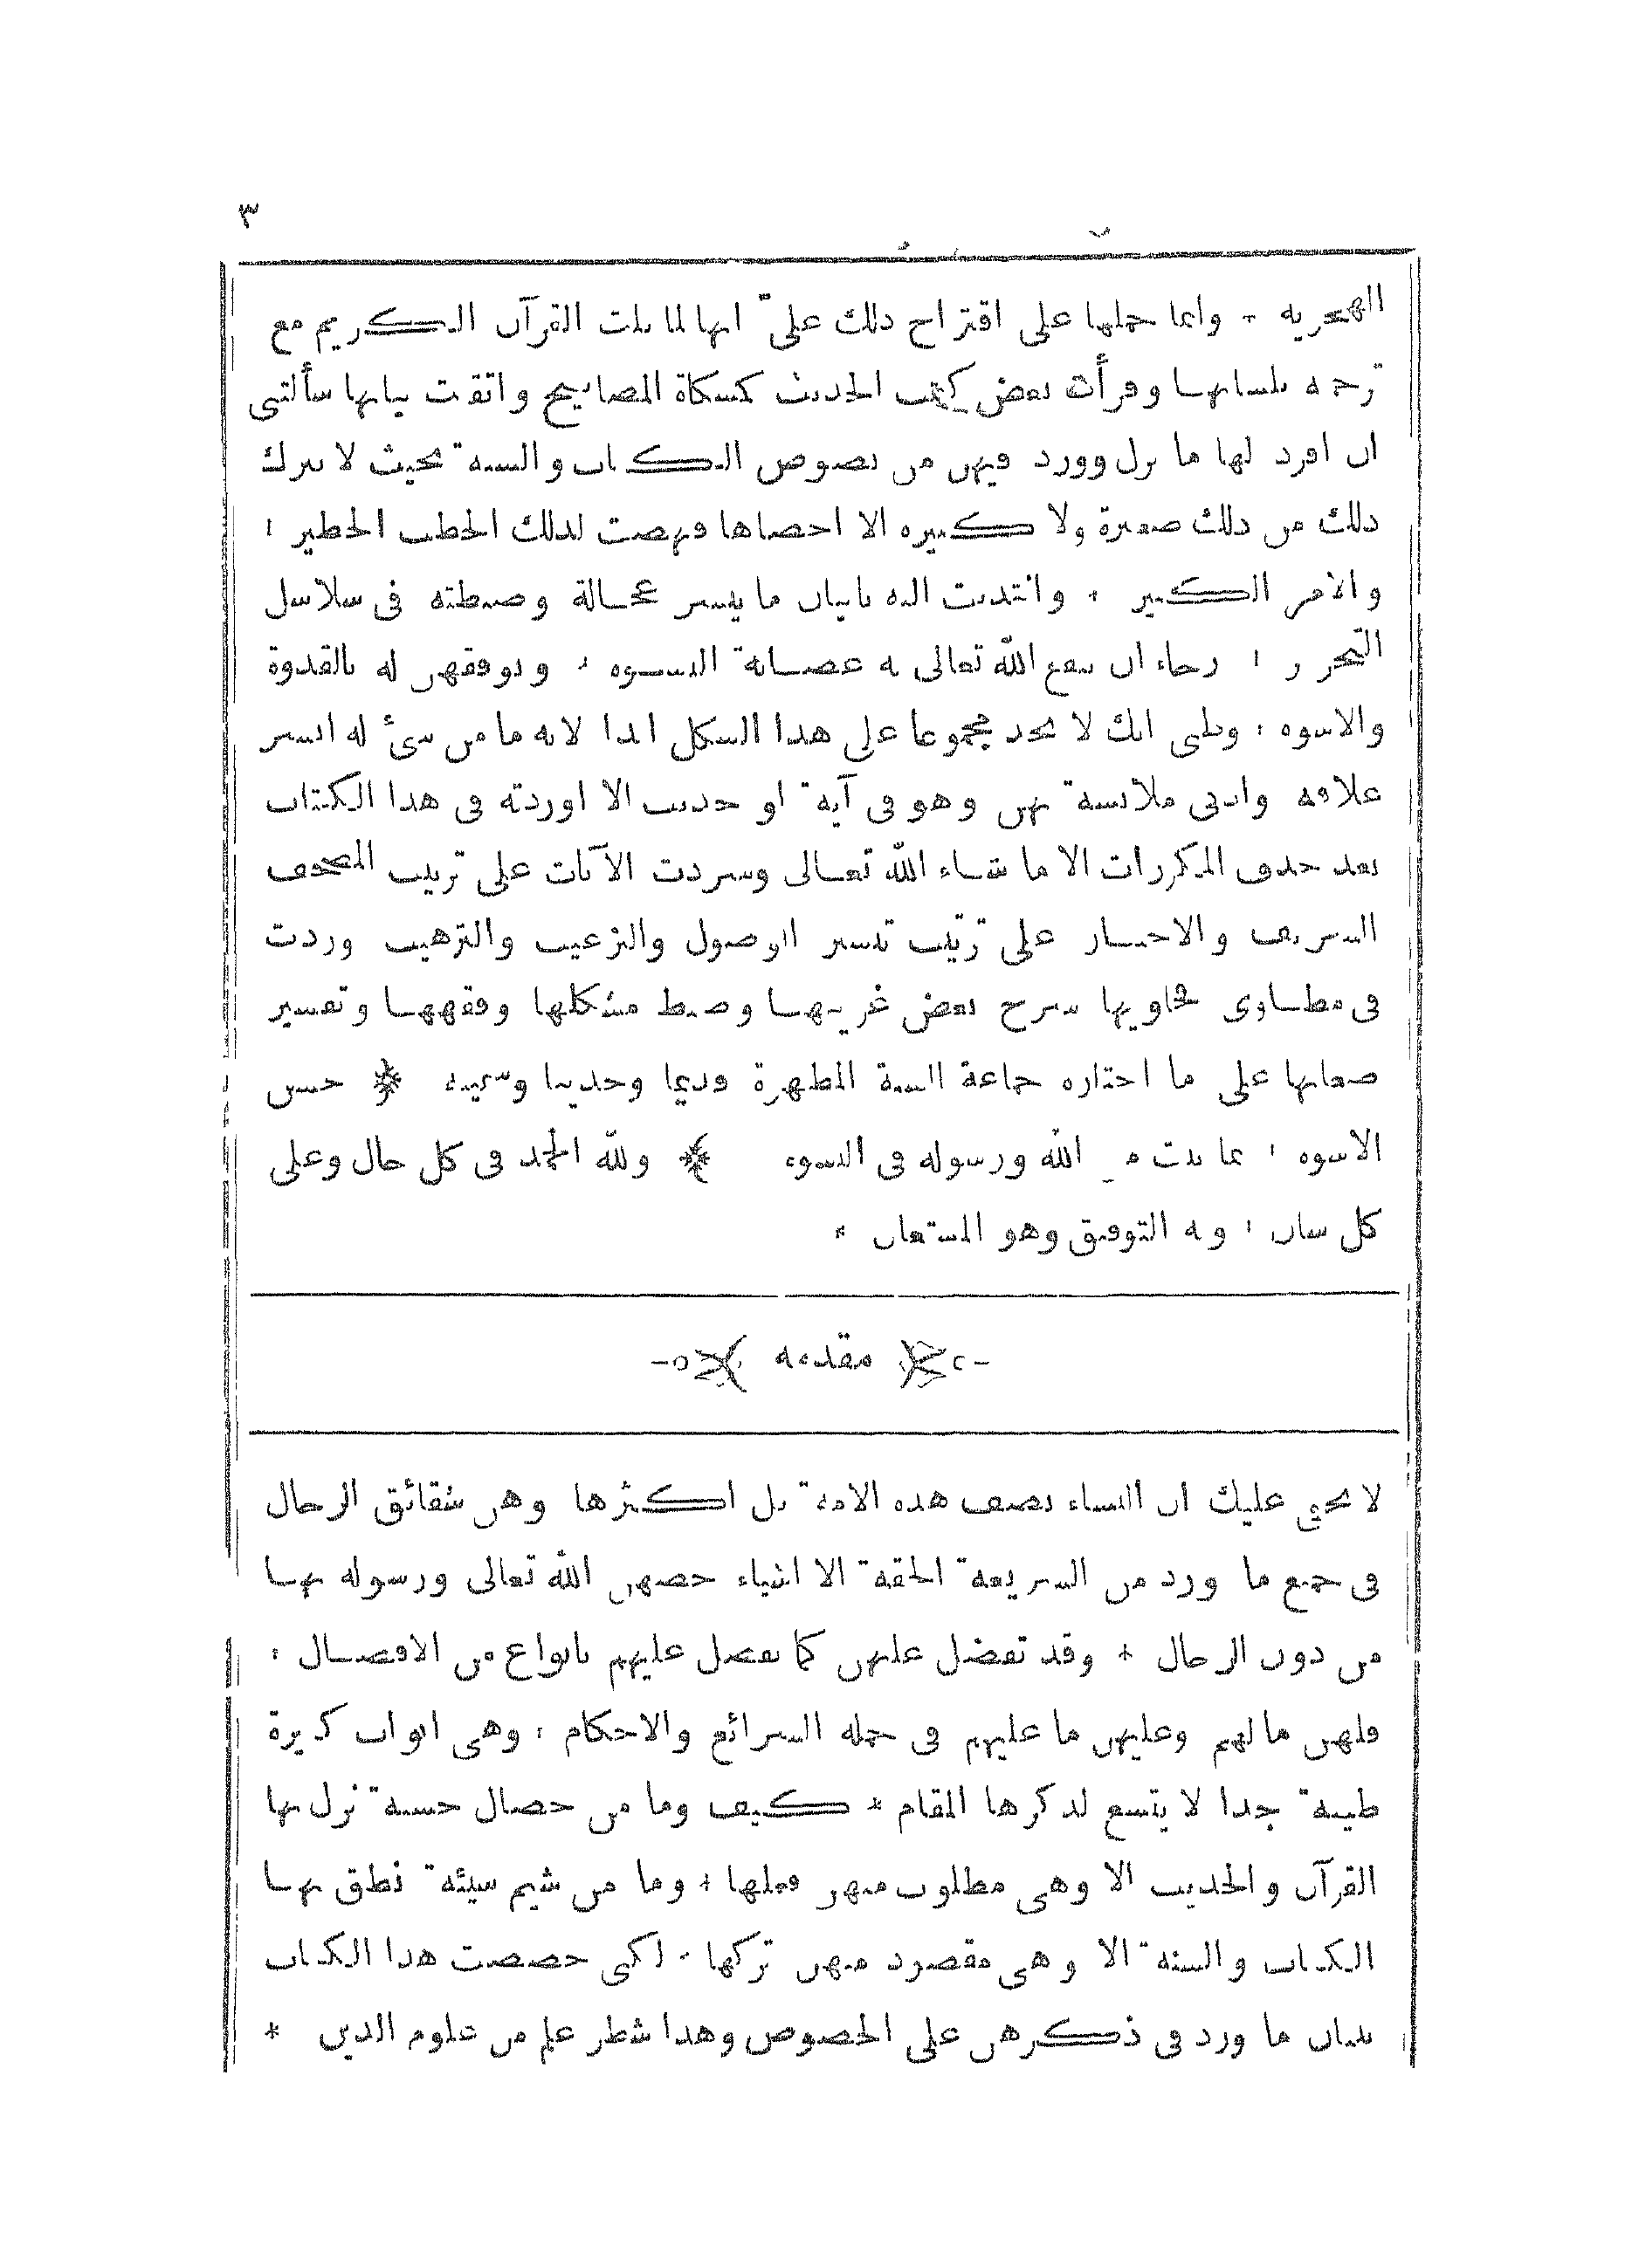 ٣
الهجرية * وانما حملها على اقتراح ذلك علىّ انها لما تلت القرآن الكريم مع
ترجمة بلسانها وقرأت بعض كتب الحديث كمشكاة المصابيح واتقنت بيانها سألتنى
ان افرد لها ما نزل وورد فيهن من نصوص الكتاب والسنة بحيث لا يترك
ذلك من ذلك صغيرة ولا كبيرة الا احصاها فنهضت لذلك الخطب الخطير *
والامر الكبير * وانتدبت اليه باتيان ما يتيسر عجالة وضبطته فى سلاسل
التحرير * رجاء ان ينفع الله تعالى به عصابة النسوة * ويوفقهن له بالقدوة
والاسوة * وظنى انك لا تجد مجموعا على هذا الشكل ابدا لانه ما من شئ له ايسر
علاقة وادنى ملابسة بهن وهو فى آية او حديث الا اوردته فى هذا الكتاب
بعد حذف المكررات الا ما شاء الله تعالى وسردت الآيات على ترتيب المصحف
الشريف والاخبار على ترتيب تيسير الوصول والترغيب والترهيب وزدت
فى مطاوى فحاويها شرح بعض غريبها وضبط مشكلها وفقهها وتفسير
صعابها على ما اختاره جماعة السنة المطهرة قديما وحديثا وسميته ﴿ حسن
الاسوه * بما ثبت من الله ورسوله فى النسوه ﴾ ولله الحمد فى كل حال وعلى
كل شان * وبه التوفيق وهو المستعان *
مقدمة
لا يخفى عليك ان النساء نصف هذه الامة بل اكثرها وهن شقائق الرجال
فى جميع ما ورد من الشريعة الحقة الا اشياء خصهن الله تعالى ورسوله بها
من دون الرجال * وقد تفضل عليهن كما تفضل عليهم بانواع من الافضال *
فلهن ما لهم وعليهن ما عليهم فى جملة الشرائع والاحكام * وهى ابواب كثيرة
طيبة جدا لا يتسع لذكرها المقام * كيف وما من خصال حسنة نزل بها
القرآن والحديث الا وهى مطلوب منهن فعلها * وما من شيم سيئة نطق بها
الكتاب والسنة الا وهى مقصود منهن تركها * لكنى خصصت هذا الكتاب
ببيان ما ورد فى ذكرهن على الخصوص وهذا شطر علم من علوم الدين *